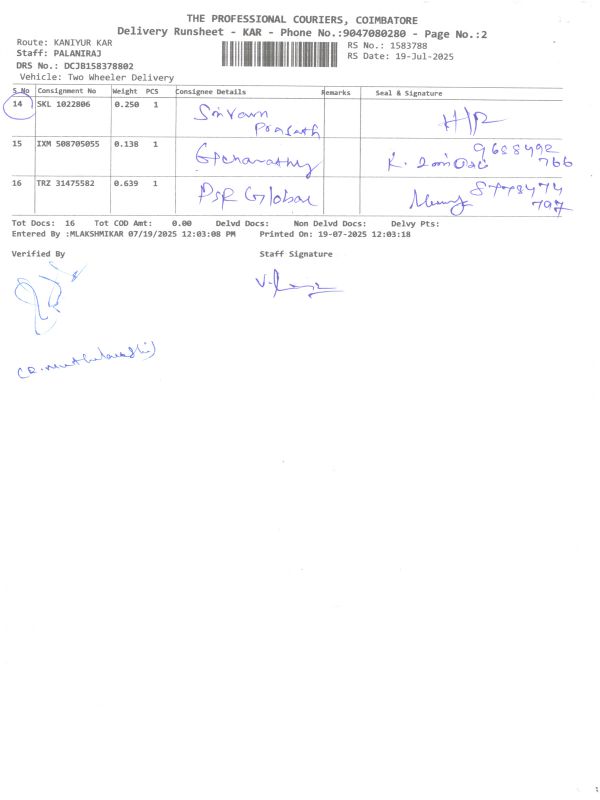 THE PROFESSIONAL COURIERS, COIMBATORE
Delivery Runsheet - KAR - Phone No.:9047080280 - Page No.:2
Route: KANIYUR KAR
RS No.: 1583788
Staff: PALANIRAJ
RS Date: 19-Jul-2025
DRS No.: DCJB158378802
Vehicle: Two Wheeler Delivery
S.No Consignment No Weight PCS Consignee Details Remarks Seal & Signature
14 SKL 1022806 0.250 1 H/R
Prasath
15 IXM 508705055 0.138 1 9688492
K. 766
16 TRZ 31475582 0.639 1 PSR Global 8778474
797
Tot Docs: 16 Tot COD Amt: 0.00 Delvd Docs: Non Delvd Docs: Delvy Pts:
Entered By :MLAKSHMIKAR 07/19/2025 12:03:08 PM Printed On: 19-07-2025 12:03:18
Verified By Staff Signature